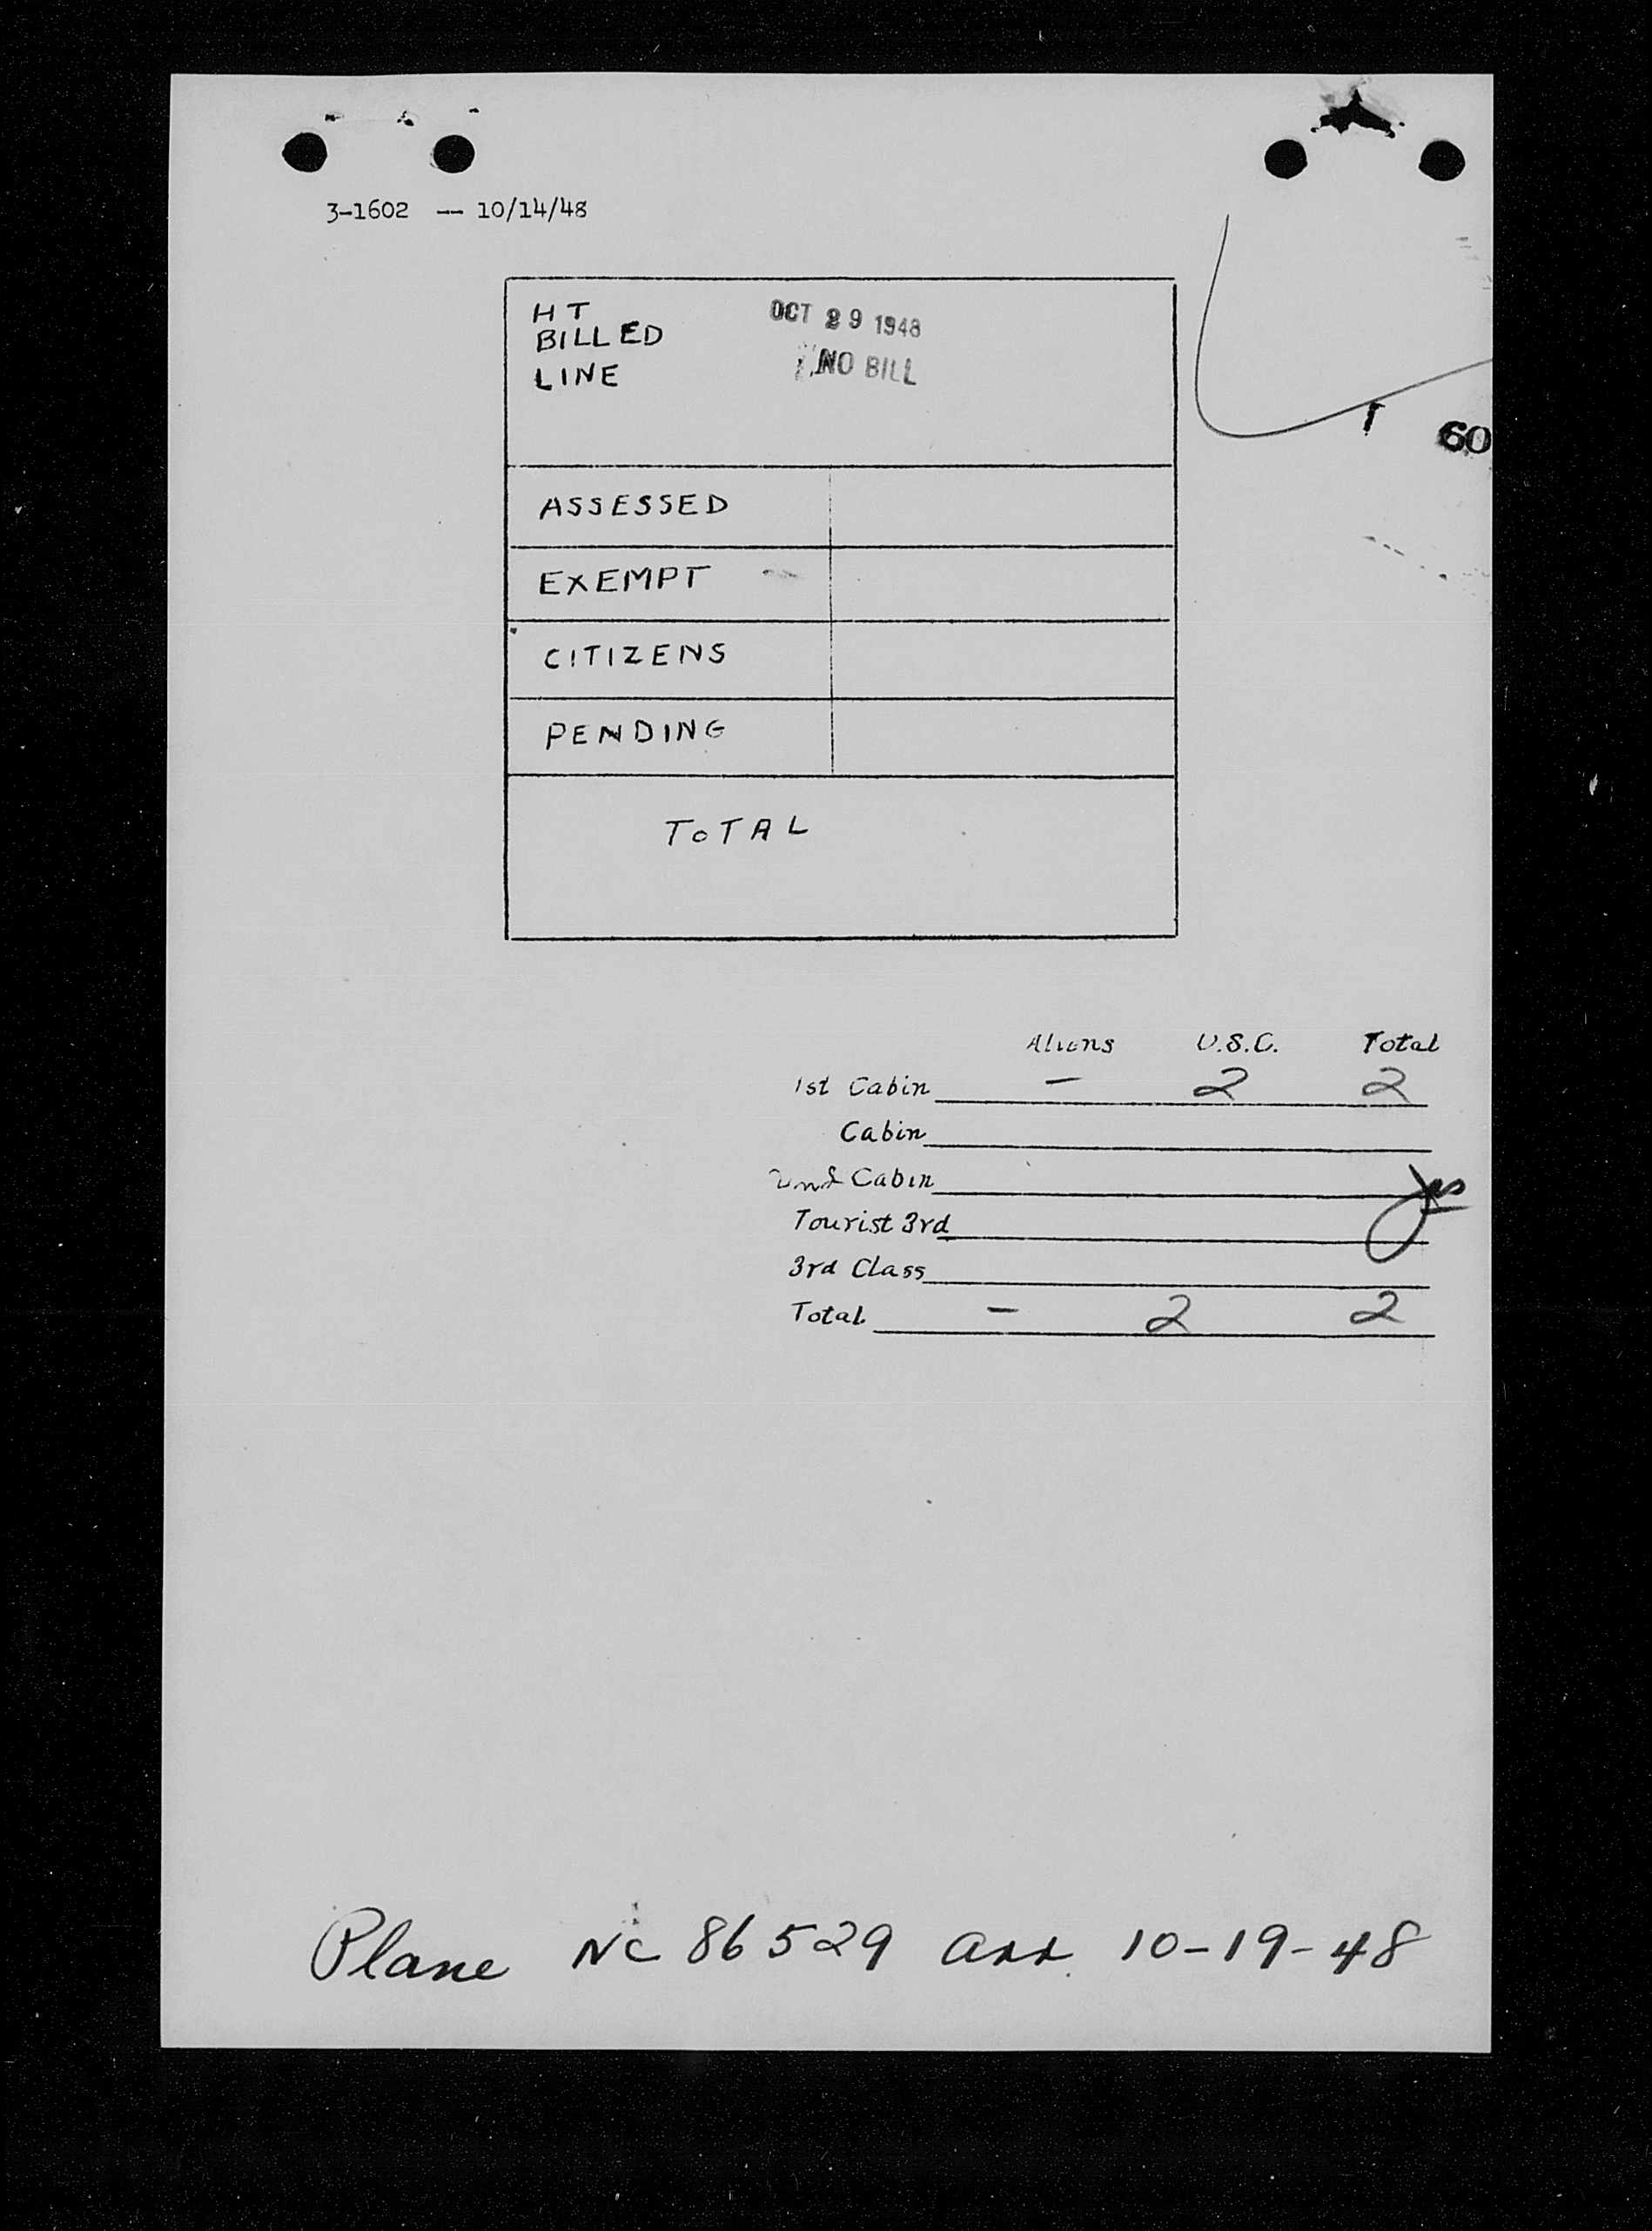 3-1602 -- 10/14/48
HT
BILLED
LINE
OCT 29 1948
NO BILL
1 60
ASSESSED
EXEMPT
CITIZENS
PENDING
TOTAL
Aliens U.S.C. Total
1st Cabin - 2 2
Cabin
2nd Cabin
Tourist 3rd
3rd Class
Total - 2 2
Plane NC 86529 arr. 10-19-48